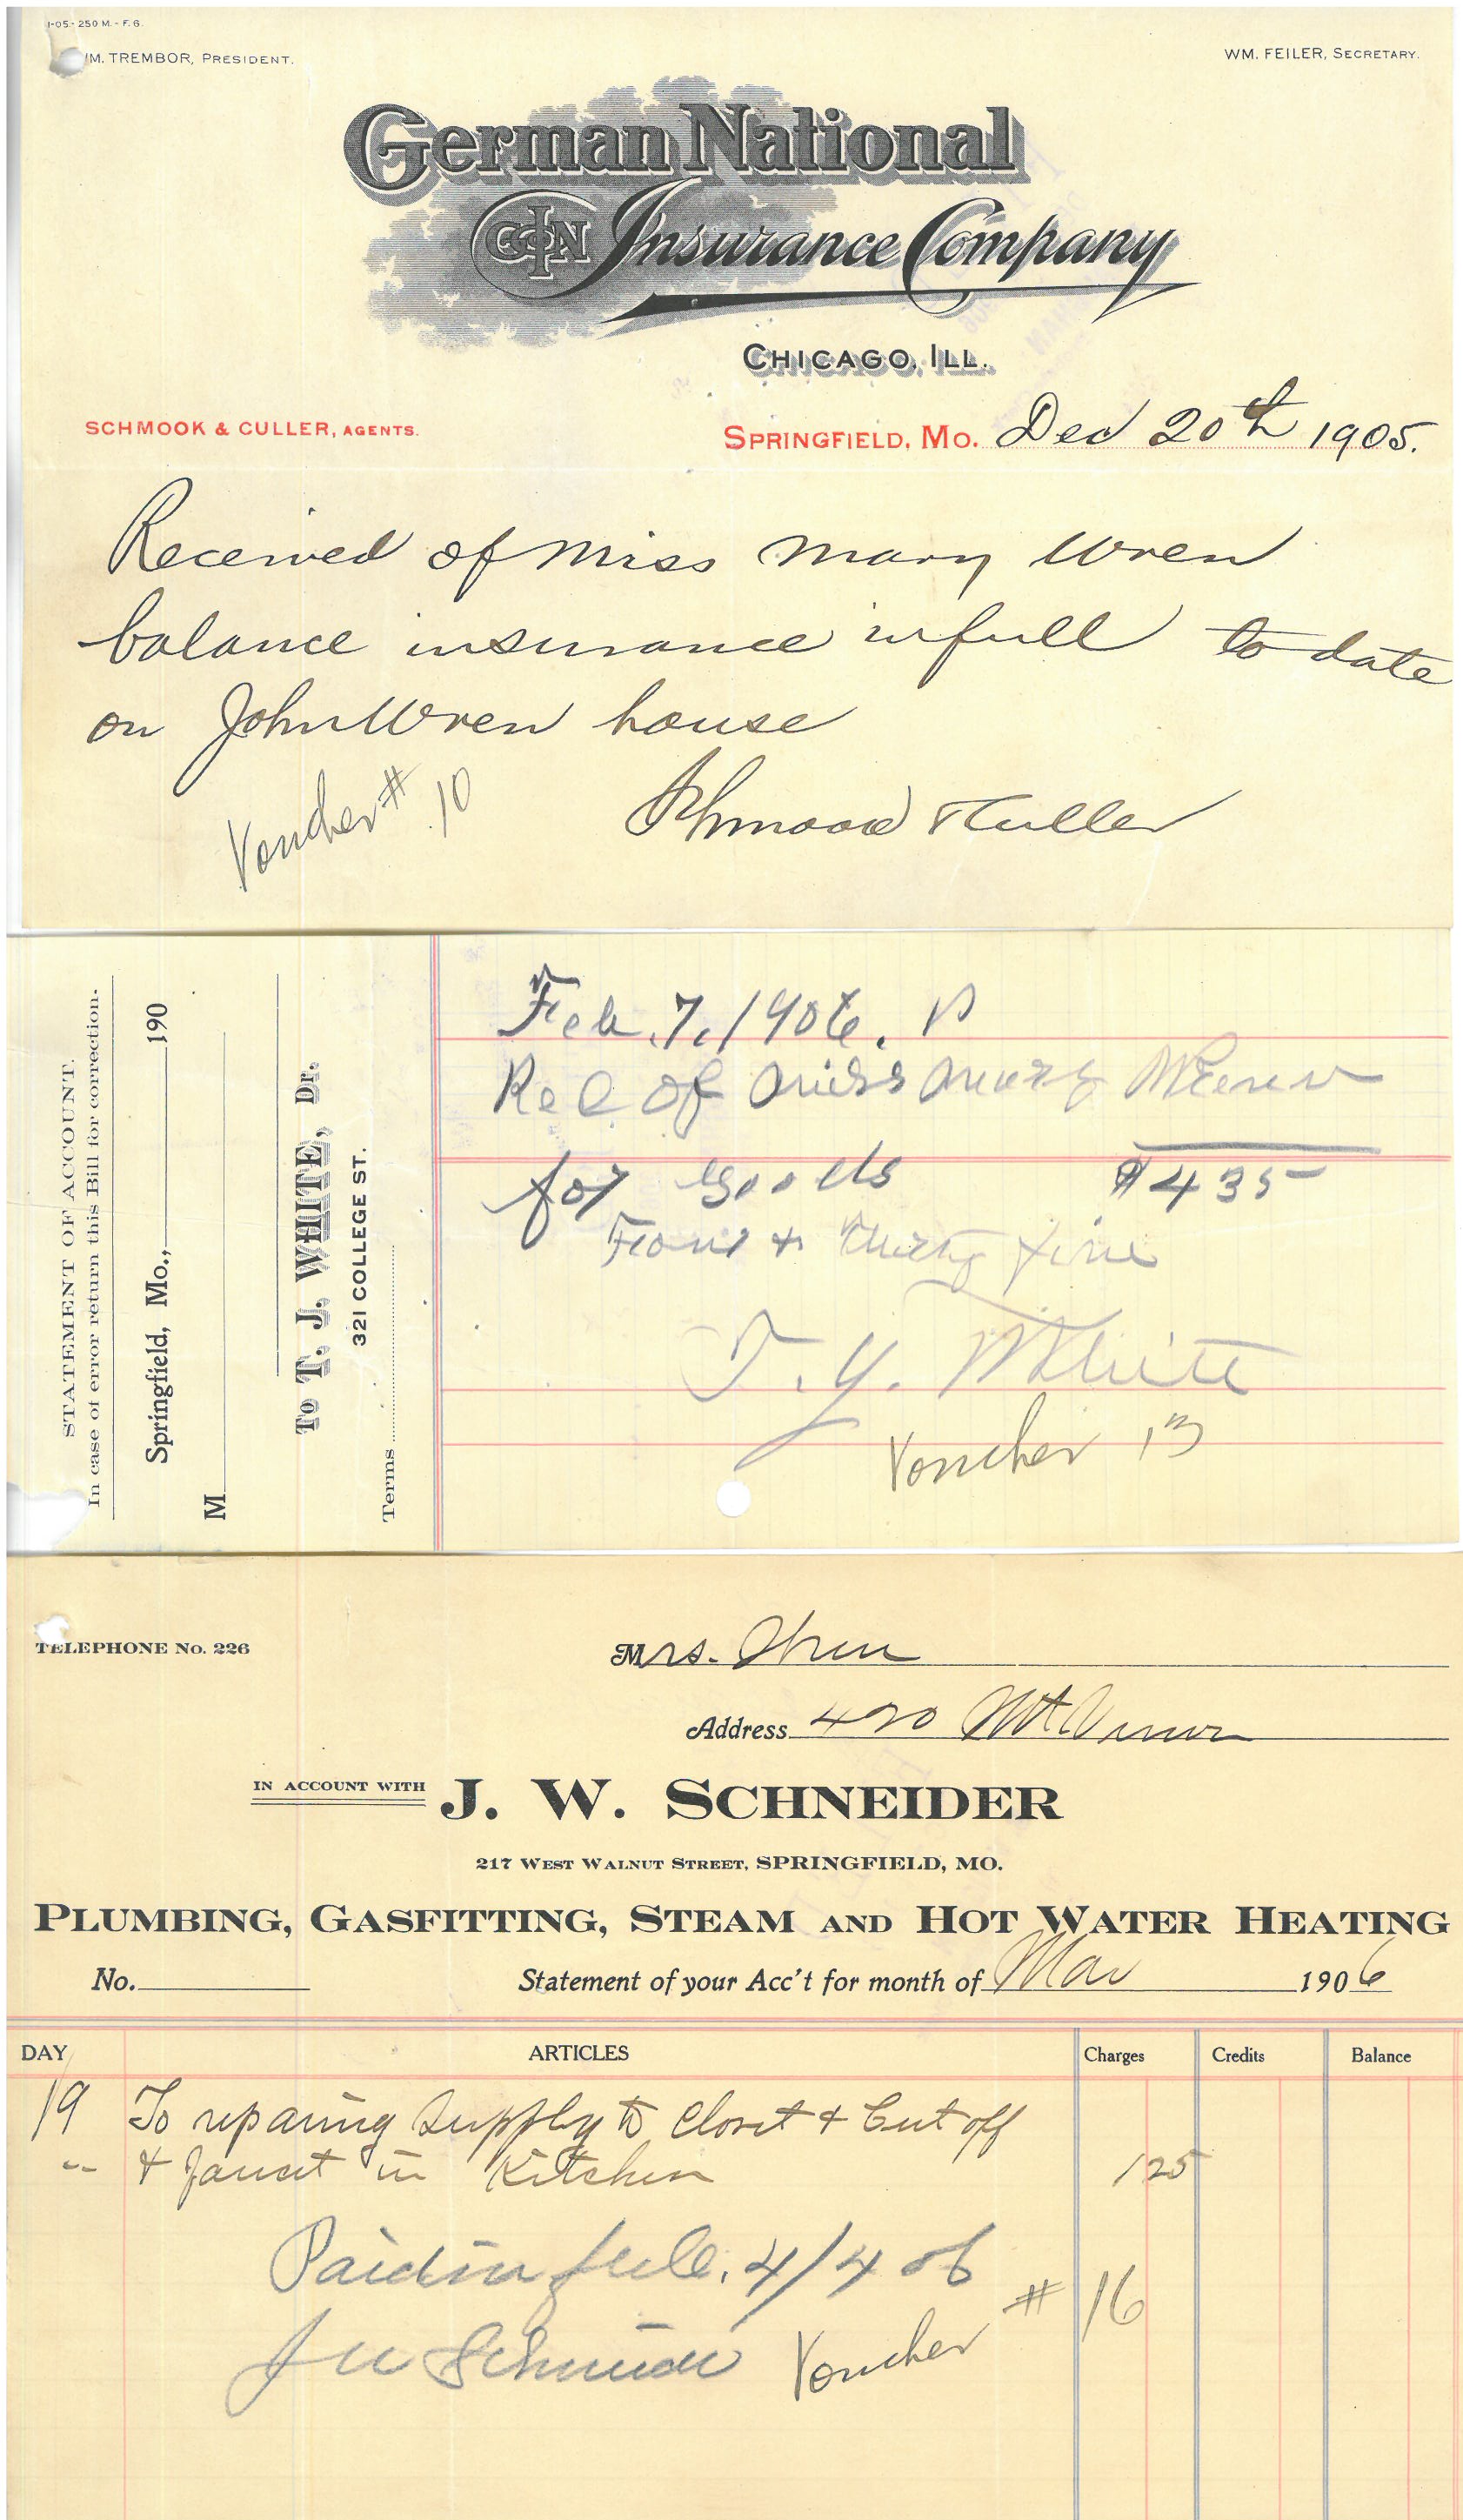 1-05.-250 M.- F. 6.
M. TREMBOR, PRESIDENT.
WM. FEILER, SECRETARY.
German National
GINCO Insurance Company
CHICAGO, ILL.
SCHMOOK & CULLER, AGENTS.
SPRINGFIELD, MO. Dec 20th 1905.
Received of Miss Mary Wren
balance insurance in full to date
on John Wren house
Schmook & Culler
Voucher # 10
STATEMENT OF ACCOUNT.
In case of error return this Bill for correction.
Springfield, Mo., 190
M
To T. J. WHITE, Dr.
321 COLLEGE ST.
Terms
Feb. 7, 1906.
Rec of Miss Mary Wrenn
for Goods $4 35
Four & Thirty five
T. J. White
Voucher 13
TELEPHONE No. 226
Mrs. Wren
Address 420 Mt Vernon
IN ACCOUNT WITH J. W. SCHNEIDER
217 WEST WALNUT STREET, SPRINGFIELD, MO.
PLUMBING, GASFITTING, STEAM AND HOT WATER HEATING
No. Statement of your Acc't for month of Mar 1906
DAY ARTICLES Charges Credits Balance
19 To reparing supply to Closet & Cut off
" & faucet in Kitchen 1 25
Paid in full. 4/4 06
J W Schneider Voucher # 16